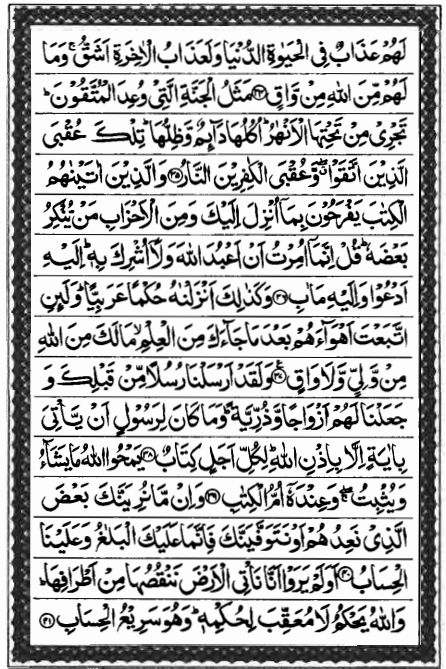 لَهُمْ عَذَابٌ فِى الْحَيٰوةِ الدُّنْيَا وَلَعَذَابُ الْاٰخِرَةِ اَشَقُّ ۚ وَمَا
لَهُمْ مِّنَ اللّٰهِ مِنْ وَّاقٍ ﴿۳۴﴾ مَثَلُ الْجَنَّةِ الَّتِىْ وُعِدَ الْمُتَّقُوْنَ ؕ
تَجْرِىْ مِنْ تَحْتِهَا الْاَنْهٰرُ ؕ اُكُلُهَا دَآئِمٌ وَّظِلُّهَا ؕ تِلْكَ عُقْبَى
الَّذِيْنَ اتَّقَوْا ۖ وَّعُقْبَى الْكٰفِرِيْنَ النَّارُ ﴿۳۵﴾ وَالَّذِيْنَ اٰتَيْنٰهُمُ
الْكِتٰبَ يَفْرَحُوْنَ بِمَاۤ اُنْزِلَ اِلَيْكَ وَمِنَ الْاَحْزَابِ مَنْ يُّنْكِرُ
بَعْضَهٗ ؕ قُلْ اِنَّمَاۤ اُمِرْتُ اَنْ اَعْبُدَ اللّٰهَ وَلَاۤ اُشْرِكَ بِهٖ ؕ اِلَيْهِ
اَدْعُوْا وَاِلَيْهِ مَاٰبِ ﴿۳۶﴾ وَكَذٰلِكَ اَنْزَلْنٰهُ حُكْمًا عَرَبِيًّا ؕ وَلَئِنِ
اتَّبَعْتَ اَهْوَآءَهُمْ بَعْدَ مَا جَآءَكَ مِنَ الْعِلْمِ ۙ مَا لَكَ مِنَ اللّٰهِ
مِنْ وَّلِىٍّ وَّلَا وَاقٍ ﴿۳۷﴾ وَلَقَدْ اَرْسَلْنَا رُسُلًا مِّنْ قَبْلِكَ وَ
جَعَلْنَا لَهُمْ اَزْوَاجًا وَّذُرِّيَّةً ؕ وَمَا كَانَ لِرَسُوْلٍ اَنْ يَّاْتِىَ
بِاٰيَةٍ اِلَّا بِاِذْنِ اللّٰهِ ؕ لِكُلِّ اَجَلٍ كِتَابٌ ﴿۳۸﴾ يَمْحُوا اللّٰهُ مَا يَشَآءُ
وَيُثْبِتُ ۖ وَعِنْدَهٗۤ اُمُّ الْكِتٰبِ ﴿۳۹﴾ وَاِنْ مَّا نُرِيَنَّكَ بَعْضَ
الَّذِىْ نَعِدُهُمْ اَوْ نَتَوَفَّيَنَّكَ فَاِنَّمَا عَلَيْكَ الْبَلٰغُ وَعَلَيْنَا
الْحِسَابُ ﴿۴۰﴾ اَوَلَمْ يَرَوْا اَنَّا نَاْتِى الْاَرْضَ نَنْقُصُهَا مِنْ اَطْرَافِهَا ؕ
وَاللّٰهُ يَحْكُمُ لَا مُعَقِّبَ لِحُكْمِهٖ ؕ وَهُوَ سَرِيْعُ الْحِسَابِ ﴿۴۱﴾